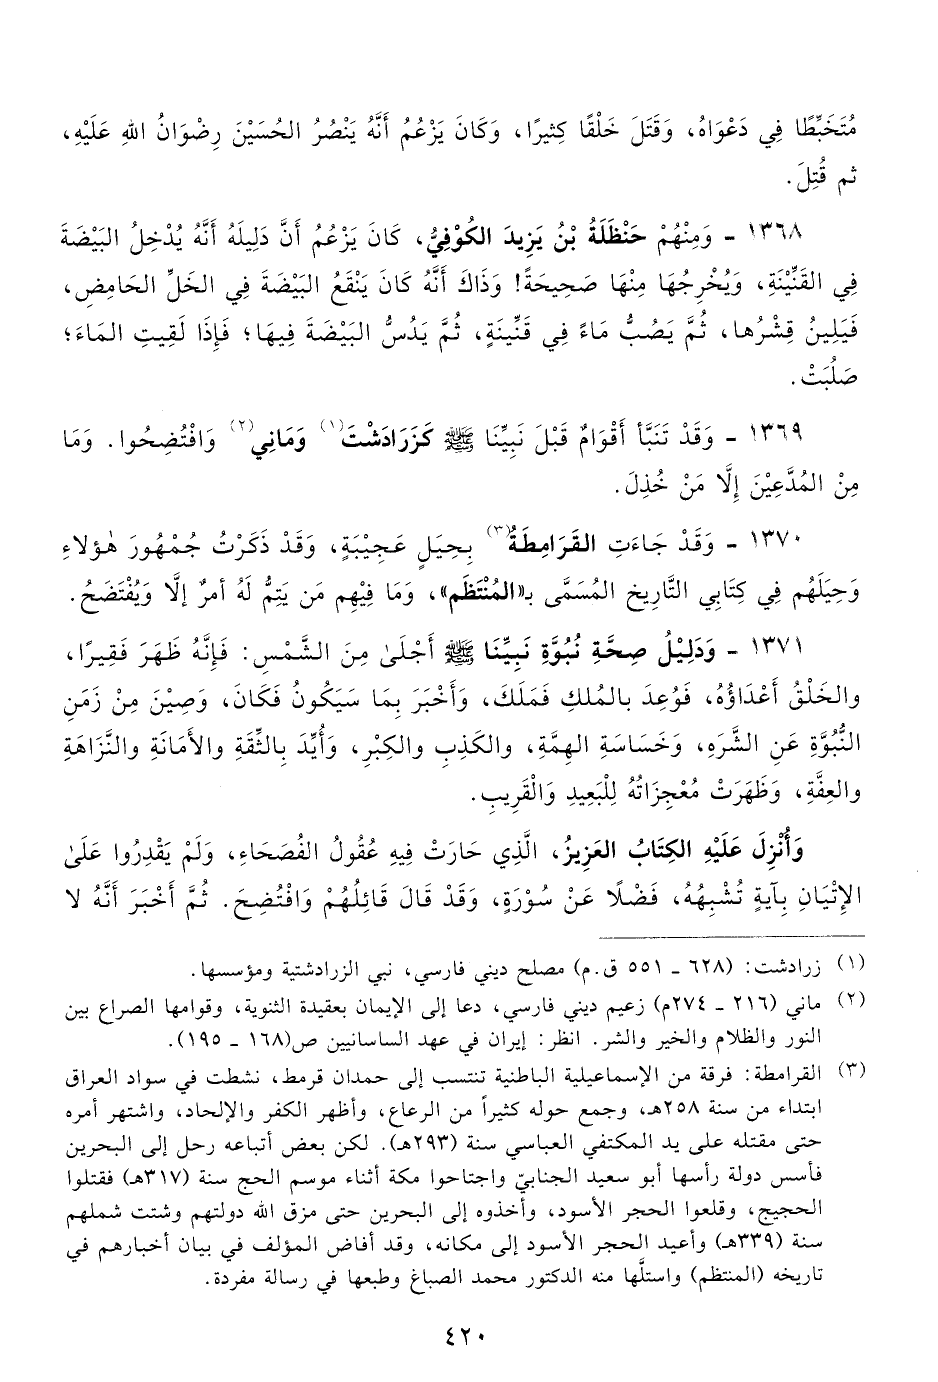 مُتَخَبِّطًا فِي دَعْوَاهُ، وَقَتَلَ خَلْقًا كَثِيرًا، وَكَانَ يَزْعُمُ أَنَّهُ يَنْصُرُ الحُسَيْنَ رِضْوَانُ اللهِ عَلَيْهِ،
ثم قُتِلَ.
١٣٦٨ - وَمِنْهُمْ حَنْظَلَةُ بْنُ يَزِيدَ الكُوْفِيُّ، كَانَ يَزْعُمُ أَنَّ دَلِيلَهُ أَنَّهُ يُدْخِلُ البَيْضَةَ
فِي القَنِّيْنَةِ، وَيُخْرِجُهَا مِنْهَا صَحِيحَةً! وَذَاكَ أَنَّهُ كَانَ يَنْقَعُ البَيْضَةَ فِي الخَلِّ الحَامِضِ،
فَيَلِينُ قِشْرُها، ثُمَّ يَصُبُّ مَاءً فِي قَنِّينَةٍ، ثُمَّ يَدُسُّ البَيْضَةَ فِيهَا؛ فَإِذَا لَقِيتِ المَاءَ؛
صَلُبَتْ.
١٣٦٩ - وَقَدْ تَنَبَّأَ أَقْوَامٌ قَبْلَ نَبِيِّنَا ﷺ كَزَرَادَشْتَ(١) وَمَانِي(٢) وَافْتُضِحُوا. وَمَا
مِنْ المُدَّعِيْنَ إِلَّا مَنْ خُذِلَ.
١٣٧٠ - وَقَدْ جَاءَتِ القَرَامِطَةُ(٣) بِحِيَلٍ عَجِيْبَةٍ، وَقَدْ ذَكَرْتُ جُمْهُورَ هٰؤلاءِ
وَحِيَلَهُم فِي كِتَابِي التَّارِيخِ المُسَمَّى بـ«المُنْتَظَم»، وَمَا فِيْهِم مَن يَتِمُّ لَهُ أمرٌ إلَّا وَيُفْتَضَحُ.
١٣٧١ - وَدَلِيْلُ صِحَّةِ نُبُوَّةِ نَبِيِّنَا ﷺ أَجْلَىٰ مِنَ الشَّمْسِ: فَإِنَّهُ ظَهَرَ فَقِيرًا،
والخَلْقُ أَعْدَاؤُهُ، فَوُعِدَ بالمُلكِ فَمَلَكَ، وَأَخْبَرَ بِمَا سَيَكُونُ فَكَانَ، وَصِيْنَ مِنْ زَمَنِ
النُّبُوَّةِ عَنِ الشَّرَهِ، وَخَسَاسَةِ الهِمَّةِ، والكَذِبِ والكِبْرِ، وَأُيِّدَ بِالثِّقَةِ والأَمَانَةِ والنَّزَاهَةِ
والعِفَّةِ، وَظَهَرَتْ مُعْجِزَاتُهُ لِلْبَعِيدِ وَالْقَرِيبِ.
وَأُنْزِلَ عَلَيْهِ الكِتَابُ العَزِيزُ، الَّذِي حَارَتْ فِيهِ عُقُولُ الفُصَحَاءِ، وَلَمْ يَقْدِرُوا عَلَىٰ
الإِتْيَانِ بِآيَةٍ تُشْبِهُهُ، فَضْلًا عَنْ سُوْرَةٍ، وَقَدْ قَالَ قَائِلُهُمْ وَافْتُضِحَ. ثُمَّ أَخْبَرَ أَنَّهُ لا
(١) زرادشت: (٦٢٨ - ٥٥١ ق.م) مصلح ديني فارسي، نبي الزرادشتية ومؤسسها.
(٢) ماني (٢١٦ - ٢٧٤م) زعيم ديني فارسي، دعا إلى الإيمان بعقيدة الثنوية، وقوامها الصراع بين
النور والظلام والخير والشر. انظر: إيران في عهد الساسانيين ص(١٦٨ - ١٩٥).
(٣) القرامطة: فرقة من الإسماعيلية الباطنية تنتسب إلى حمدان قرمط، نشطت في سواد العراق
ابتداء من سنة ٢٥٨هـ، وجمع حوله كثيراً من الرعاع، وأظهر الكفر والإلحاد، واشتهر أمره
حتى مقتله على يد المكتفي العباسي سنة (٢٩٣هـ). لكن بعض أتباعه رحل إلى البحرين
فأسس دولة رأسها أبو سعيد الجنابيّ واجتاحوا مكة أثناء موسم الحج سنة (٣١٧هـ) فقتلوا
الحجيج، وقلعوا الحجر الأسود، وأخذوه إلى البحرين حتى مزق الله دولتهم وشتت شملهم
سنة (٣٣٩هـ) وأعيد الحجر الأسود إلى مكانه، وقد أفاض المؤلف في بيان أخبارهم في
تاريخه (المنتظم) واستلَّها منه الدكتور محمد الصباغ وطبعها في رسالة مفردة.
٤٢٠